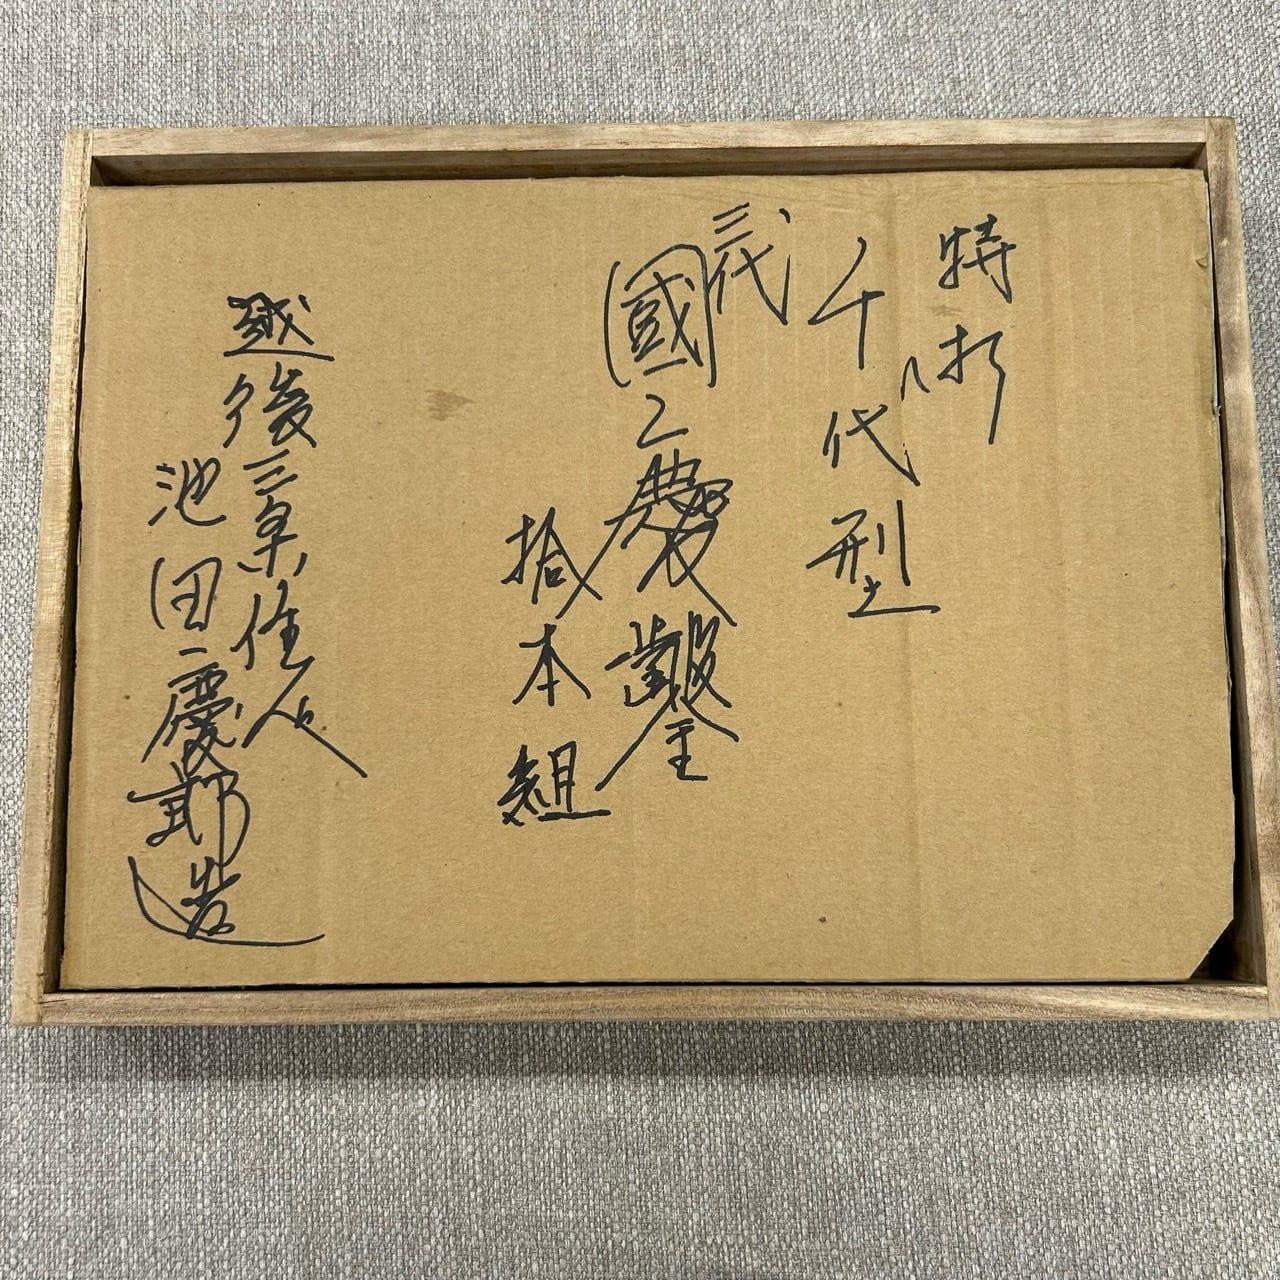 特别
千代型
三代
國慶鑿
拾本組
越後三条住人
池田慶郎造